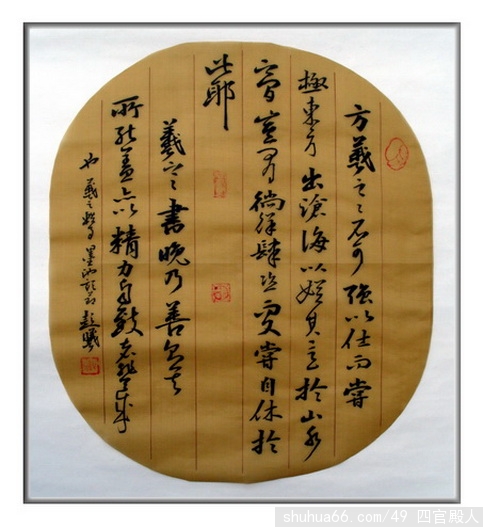 方羲之之不可強以仕而嘗
極東方出滄海以娛其意於山水
間豈有徜徉肆恣又嘗自休於
此耶
羲之之書晚乃善則其
所能蓋亦以精力自致者非天成
也 墨池
shuhua66.com/49 四官殿人